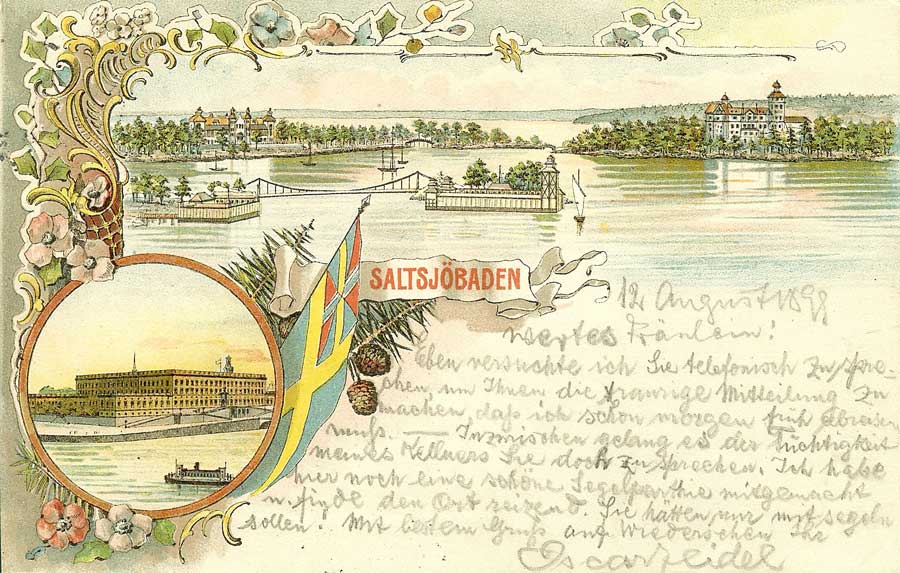 SALTSJÖBADEN
12 August 1898
Wertes Fräulein!
Eben versuchte ich Sie telefonisch zu spre-
chen, um Ihnen die traurige Mitteilung zu
machen, daß ich schon morgen früh abreisen
muß. — Inzwischen gelang es der Tüchtigkeit
meines Kellners Sie doch zu sprechen. Ich habe
hier noch eine schöne Segelparthie mitgemacht
u. finde den Ort reizend. Sie hätten nur mitsegeln
sollen! Mit bestem Gruß auf Wiedersehen Ihr
Oscar Zeidel